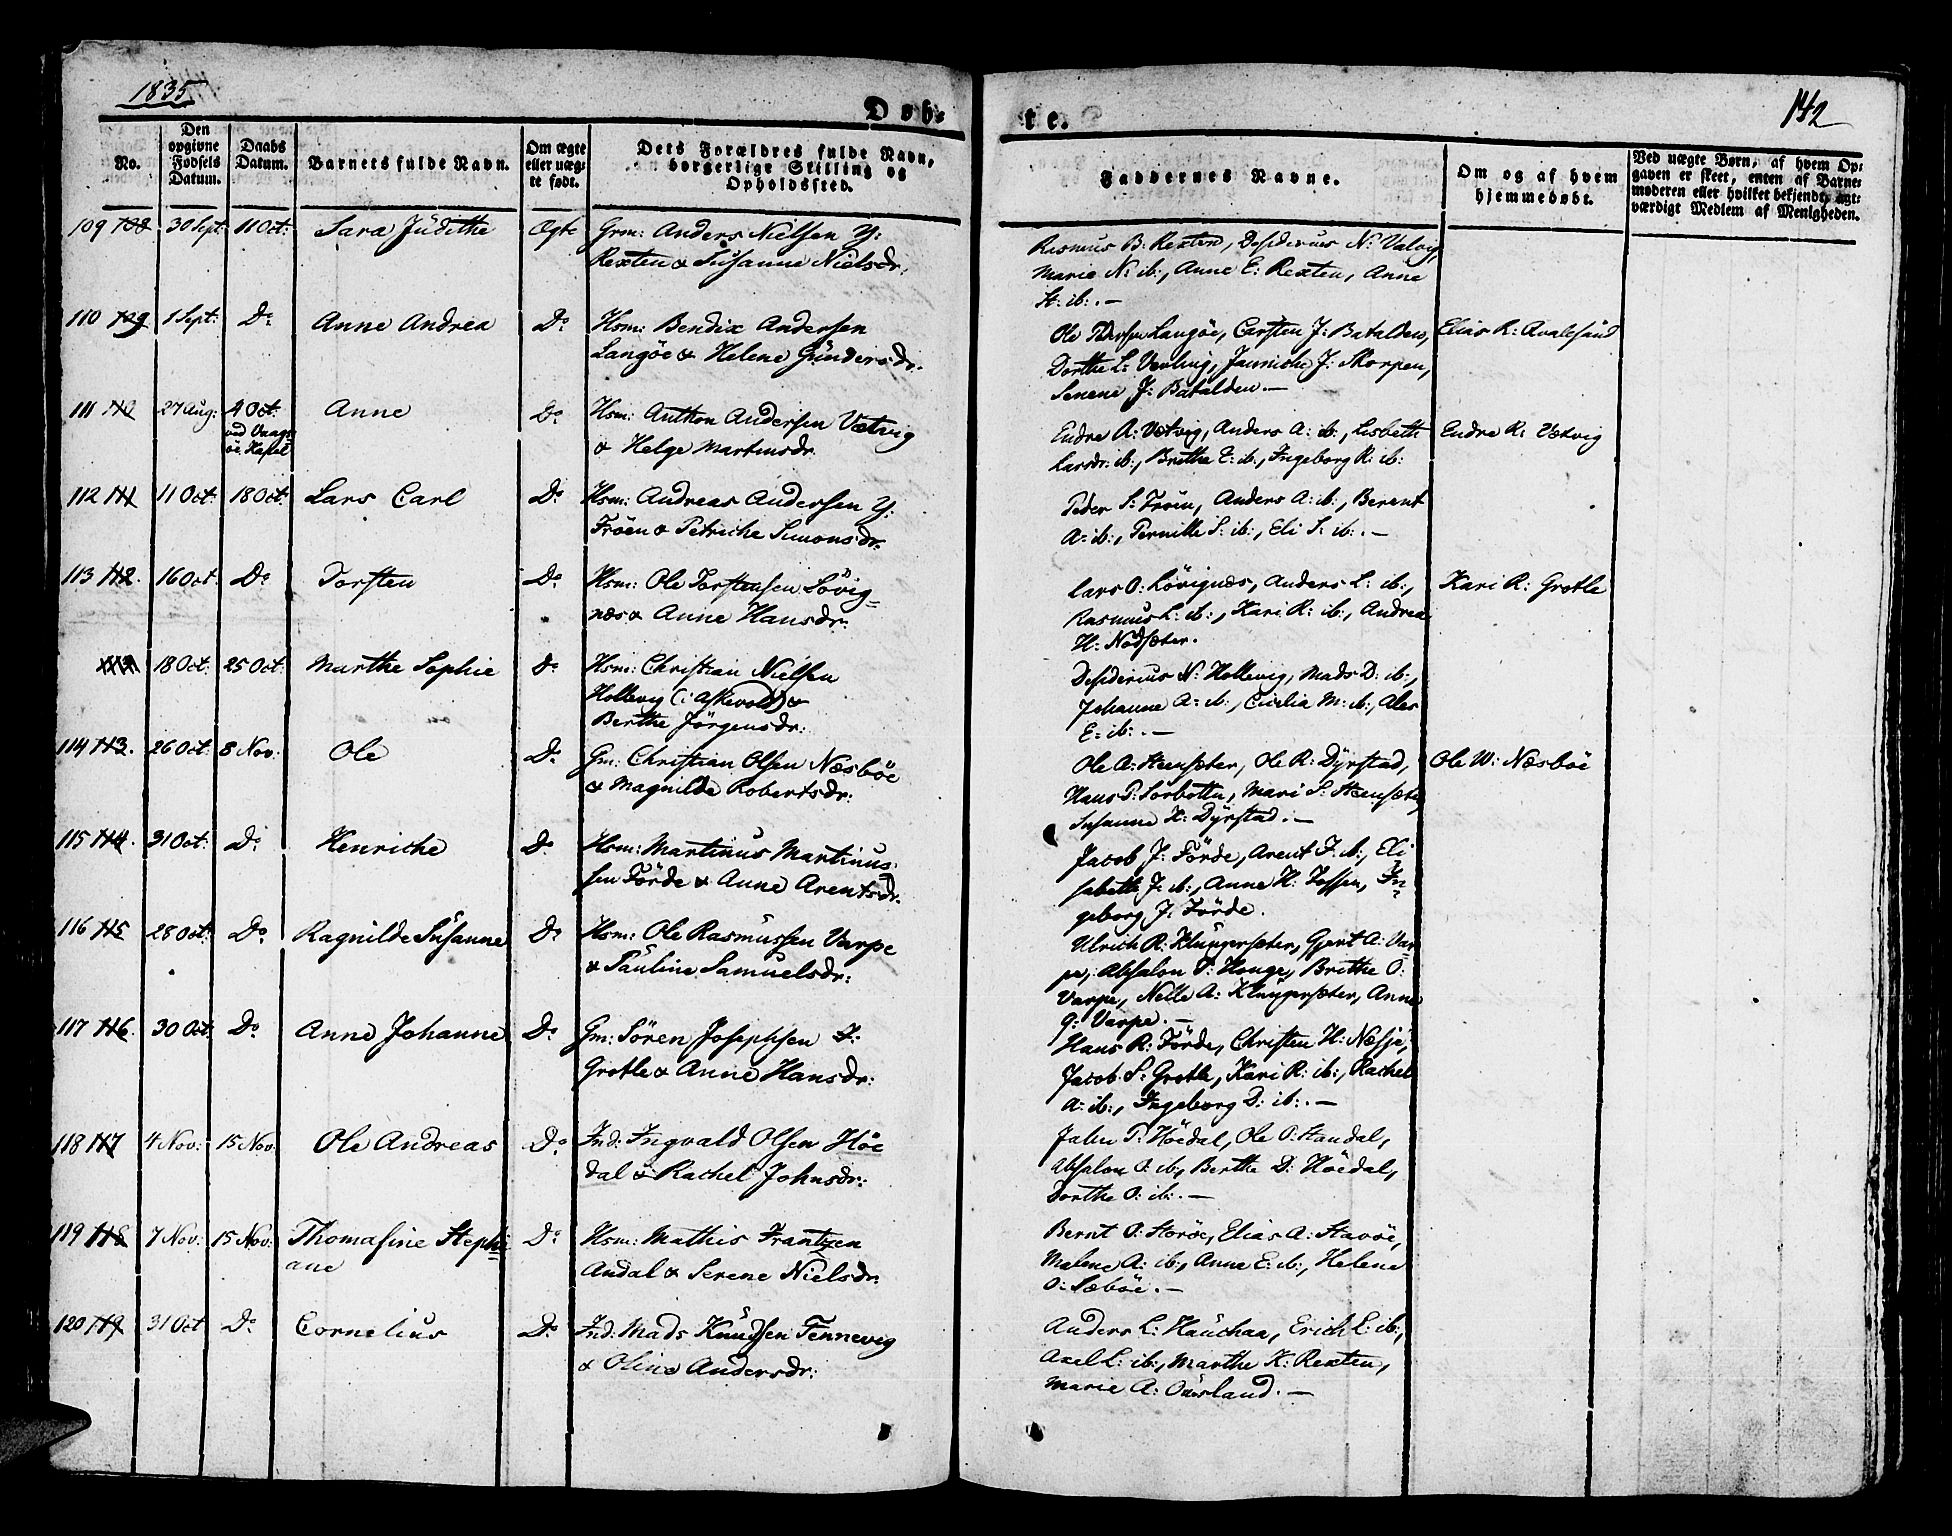 1835
Døb-
te.
142
No.
Den opgivne Fødsels Datum.
Daabs Datum.
Barnets fulde Navn.
Om ægte eller uæg-te født.
Dets Forældres fulde Navn, borgerlige Stilling og Opholdssted.
Faddernes Navne.
Om og af hvem hjemmedøbt.
Ved uægte Børn, af hvem Op-gaven er skeet, enten af Barne-moderen eller hvilket bekjendt, agt-værdigt Medlem af Menigheden.
109 108 30 Sept 11 Oct: Sara Judithe Ægte Grm: Anders Nielsen Y:
Rexten & Susanne Nielsdr.
Rasmus B: Rexten, Desiderius N: Valvig,
Marie N: ib:, Anne E: Rexten, Anne
St: ib:. —
110 109 1 Sept: Do Anne Andrea Do Hsm: Bendix Andersen
Langöe & Helene Gundersdr.
Ole Langöe, Carsten J: Batalden, Elias R: Qvalesund
Dorthe L: Janniche J: Skorpen,
Senene J: Batalden. —
111 110 27 Aug: 4 Oct: Anne Do Hsm: Anthon Andersen Vetvig
ved Vaags-
öe Kapel
& Helge Martinsdr.
Endre A: Vetvig, Anders A: ib:, Lisbeth Endre R: Vetvig
Larsdr: ib:, Brithe E: ib:, Ingeborg R: ib:
112 111 11 Oct: 18 Oct: Lars Carl Do Hsm: Andreas Andersen Y:
Fröen & Petriche Simonsdr.
Peder S: Fröen, Anders A: ib:, Berent
A: ib:, Pernille S: ib:, Eli S: ib:. —
113 112. 16 Oct. Do Torsten Do Hsm: Ole Torstensen Lövig-
næs & Anne Hansdr:
Lars O: Lövignæs, Anders L: ib:, Kari R: Grotle
Rasmus L: ib:, Kari R: ib:, Andrea
H: Nodsæter.
113. 18 Oct: 25 Oct: Marthe Sophie Do Hsm: Christian Nielsen
Hollevig (i Askevold) &
Berthe Jörgensdr:
Desiderius N: Hollevig, Mads D: ib:,
Johanne A: ib:, Cicilia M: ib:, Ales
E: ib:. —
114 113. 26 Oct: 8 Nov: Ole Do Gm: Christian Olsen Næsböe
& Magnilde Robertsdr:
Ole A: Steensæter, Ole R: Dyrstad, Ole W: Næsböe
Hans P: Sorbotten, Mari S: Steensæter,
Susanne H: Dyrstad. —
115 114. 31 Oct: Do Henriche Do Hsm: Martinus Martinus-
sen Förde & Anne Arentsdr.
Jacob J: Förde, Arent J: ib:, Eli-
sabeth J: ib:, Anne H: In-
geborg J: Förde.
116 115 28 Oct: Do Ragnilde Susanne Do Hsm: Ole Rasmussen Varpe
& Pauline Samuelsdr:
Ulrich R: Klungersæter, Gjert A: Var-
pe, Absalon P: Houge, Brithe O:
Varpe, Nelle A: Klungersæter, Anne
G: Varpe. —
117 116. 30 Oct: Do Anne Johanne Do Gm: Sören Josephsen
Grotle & Anne Hansdr:
Hans R: Förde, Christen H: Næsje,
Jacob S: Grotle, Kari R: ib:, Rachel
A: ib:, Ingeborg D: ib:. —
118 117 4 Nov: 15 Nov: Ole Andreas Do Ind: Ingvald Olsen Höe
dal & Rachel Johnsdr:
John P: Höedal, Ole O: Standal,
Absalon O: ib:, Berthe D: Höedal,
Dorthe O: ib:. —
119 118 7 Nov: 15 Nov: Thomasine Stephi- Do Hsm: Mathis Frantzen
ane
Andal & Serene Nielsdr.
Bernt O: Storöe, Elias A: Stavöe,
Malene A: ib:, Anne E: ib:, Helene
O: Sæböe. —
120 119 31 Oct Do Cornelius Do Ind: Mads Knudsen Tennevig
& Oline Andersdr:
Anders L: Hauchaa, Erich L: ib:,
Axel L: ib:, Marthe K: Rexten,
Marie A: Ousland. —